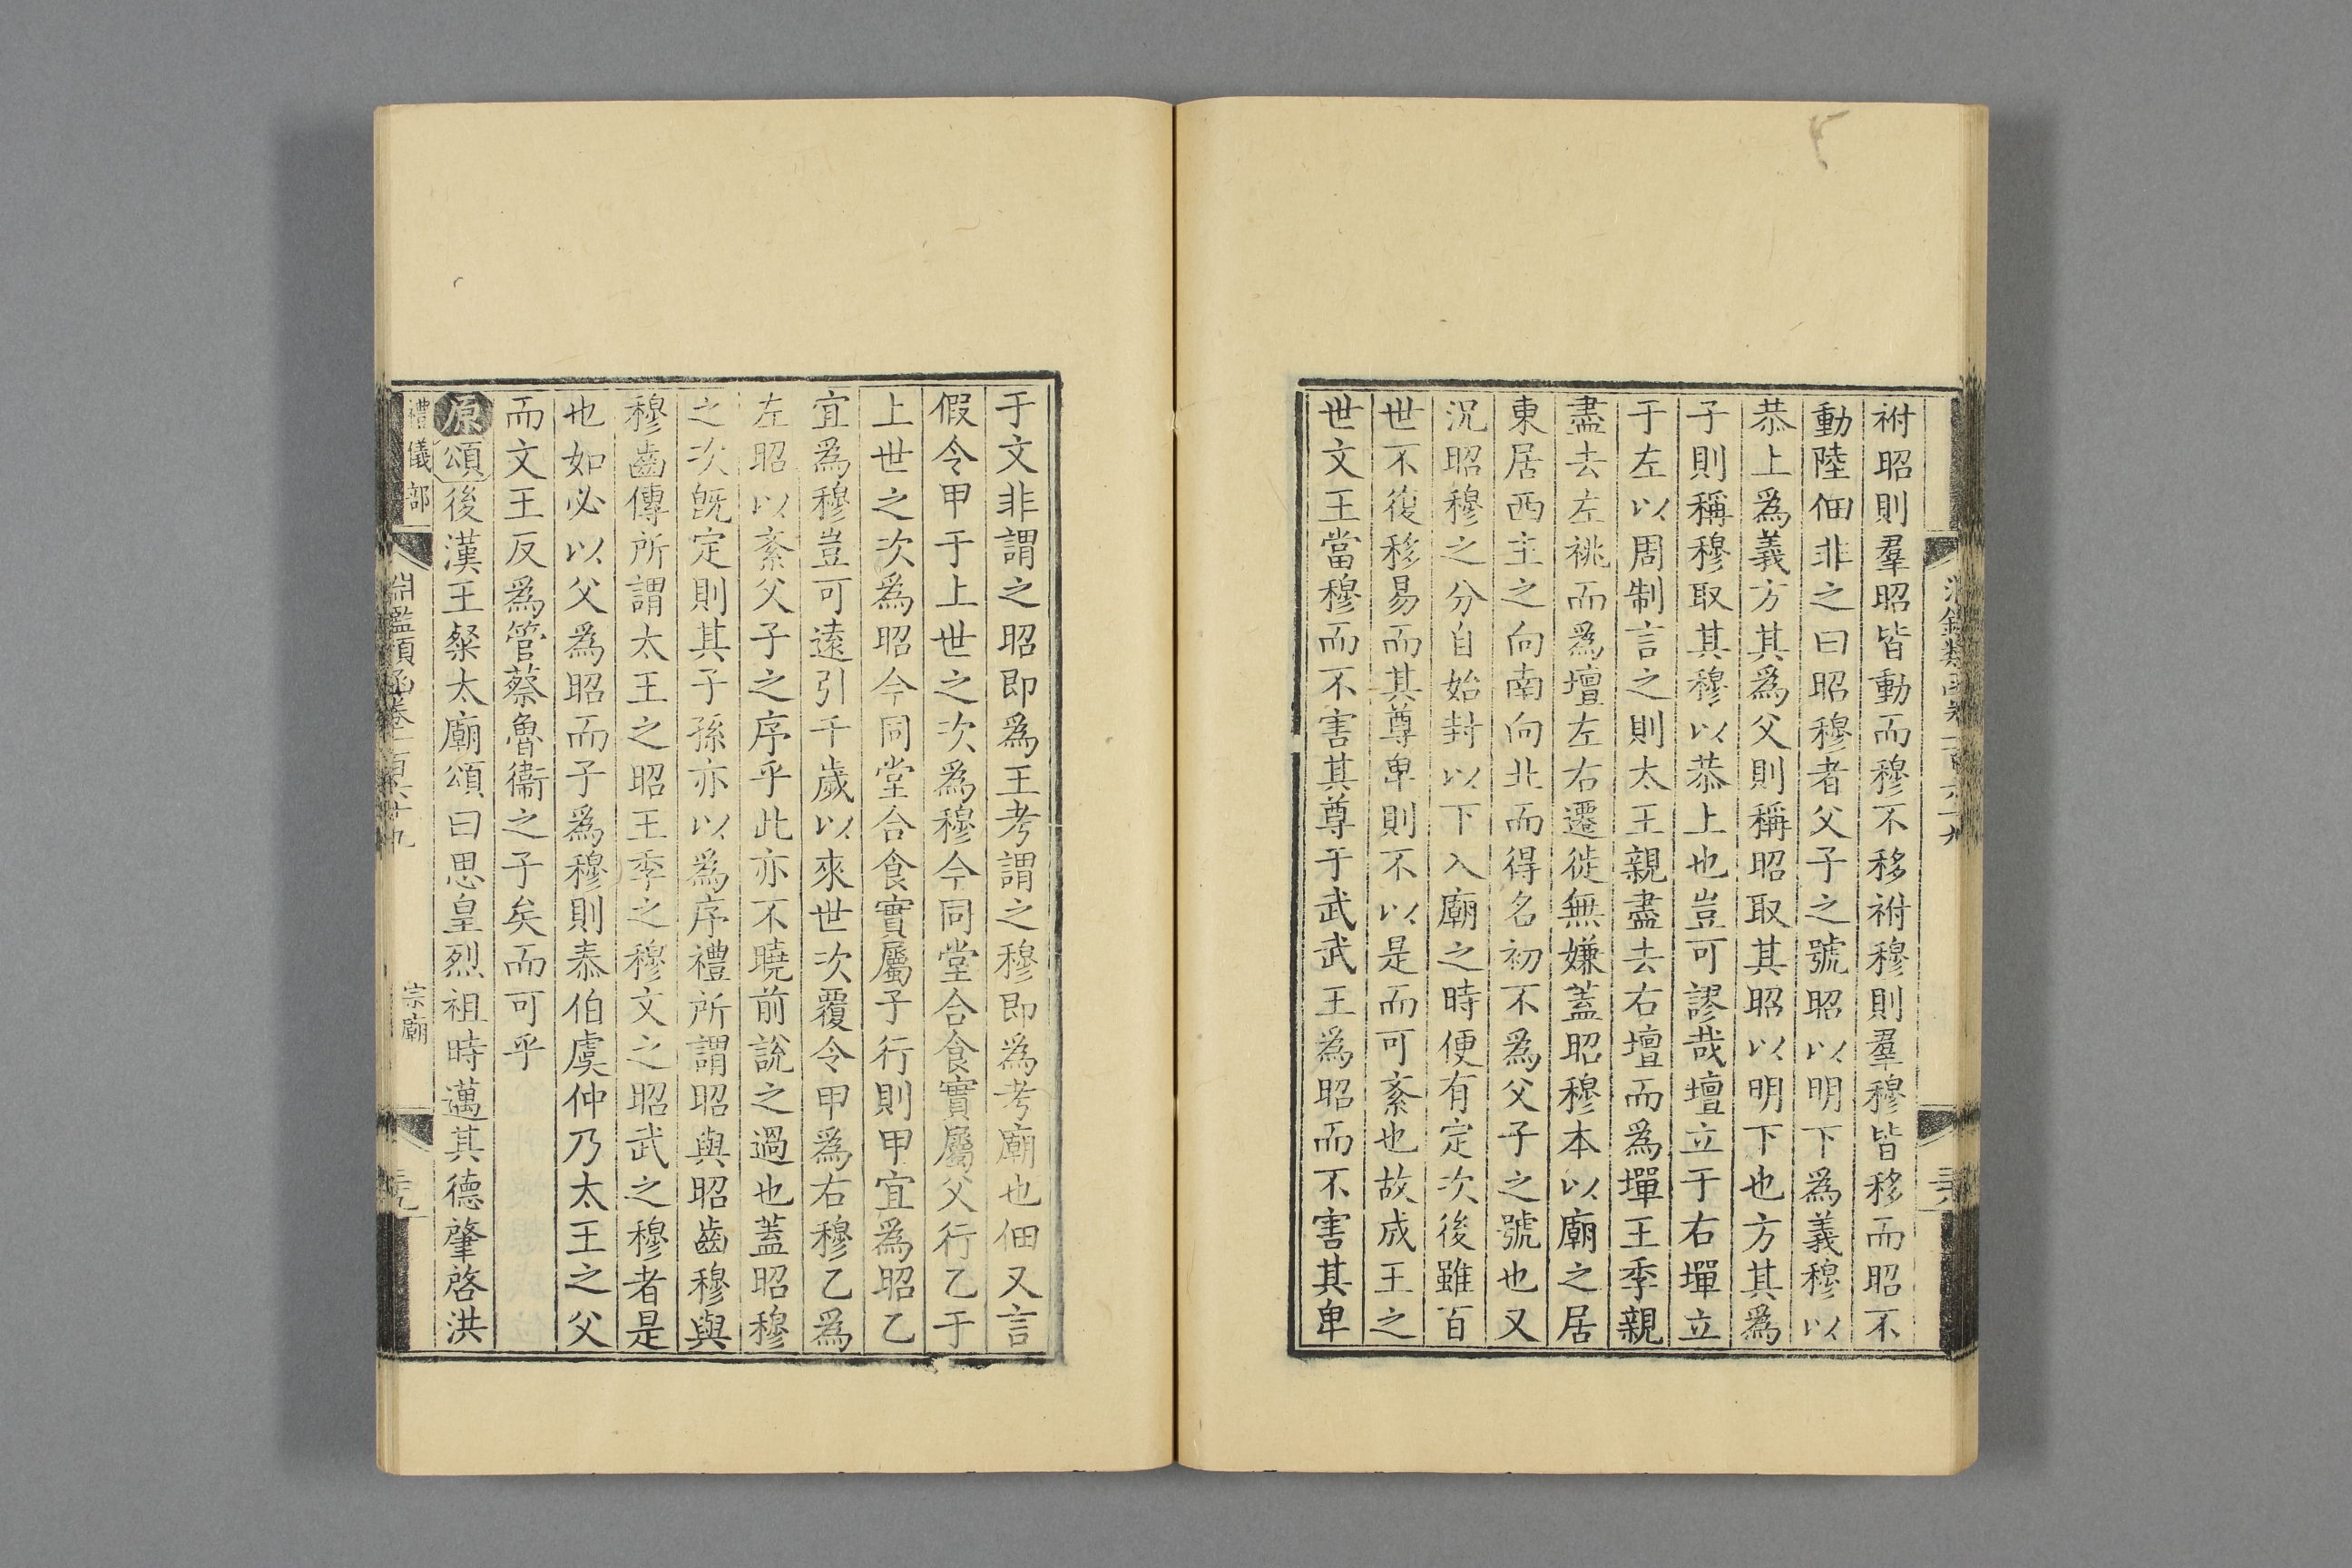 祔昭則羣昭皆動而穆不移祔穆則羣穆皆移而昭不
動陸佃非之曰昭穆者父子之號昭以明下爲義穆以
恭上爲義方其爲父則稱昭取其昭以明下也方其爲
子則稱穆取其穆以恭上也豈可謬哉壇立于右墠立
于左以周制言之則太王親盡去右壇而爲墠王季親
盡去左祧而爲壇左右遷徙無嫌葢昭穆本以廟之居
東居西主之向南向北而得名初不爲父子之號也又
況昭穆之分自始封以下入廟之時便有定次後雖百
世不復移易而其尊卑則不以是而可紊也故成王之
世文王當穆而不害其尊于武武王爲昭而不害其卑
于文非謂之昭即爲王考謂之穆即爲考廟也佃又言
假令甲于上世之次爲穆今同堂合食實屬父行乙于
上世之次爲昭今同堂合食實屬子行則甲宜爲昭乙
宜爲穆豈可遠引千歲以來世次覆令甲爲右穆乙爲
左昭以紊父子之序乎此亦不曉前說之過也蓋昭穆
之次旣定則其子孫亦以爲序禮所謂昭與昭齒穆與
穆齒傳所謂太王之昭王季之穆文之昭武之穆者是
也如必以父爲昭而子爲穆則泰伯虞仲乃太王之父
而文王反爲管蔡魯衞之子矣而可乎
原頌後漢王粲太廟頌曰思皇烈祖時邁其德肇啓洪
禮儀部
淵鑑類函卷一百六十九
宗廟